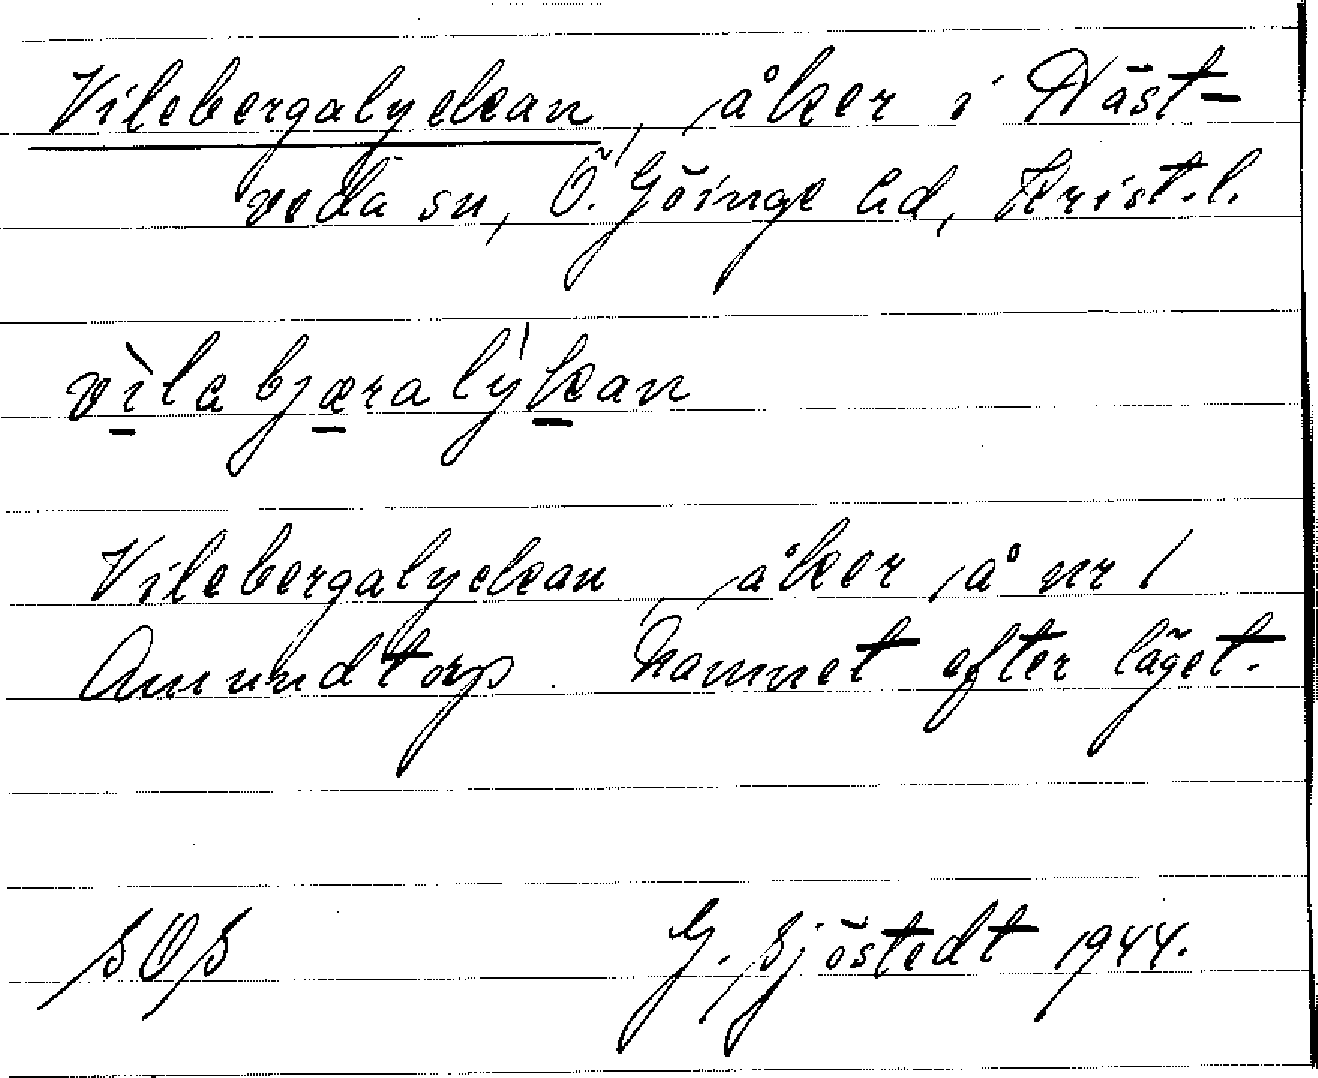 Vilebergalyckan, åker i Näst-
veda sn, Ö. Göinge hd, Krist.l.
vìlabjæralýkan
Vilebergalyckan, åker å nr 1
Amundtorp. Namnet efter läget.
SOS G. Sjöstedt 1944.